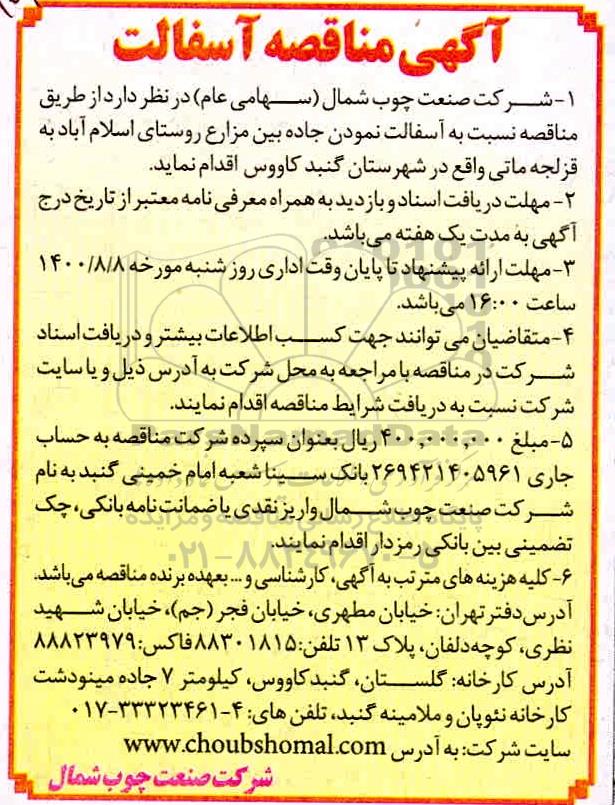 آگهی مناقصه آسفالت
۱- شرکت صنعت چوب شمال (سهامی عام) در نظر دارد از طریق
مناقصه نسبت به آسفالت نمودن جاده بین مزارع روستای اسلام آباد به
قزلجه ماتی واقع در شهرستان گنبد کاووس اقدام نماید.
۲- مهلت دریافت اسناد و بازدید به همراه معرفی نامه معتبر از تاریخ درج
آگهی به مدت یک هفته می‌باشد.
۳- مهلت ارائه پیشنهاد تا پایان وقت اداری روز شنبه مورخه ۱۴۰۰/۸/۸
ساعت ۱۶:۰۰ می‌باشد.
۴- متقاضیان می توانند جهت کسب اطلاعات بیشتر و دریافت اسناد
شرکت در مناقصه با مراجعه به محل شرکت به آدرس ذیل و یا سایت
شرکت نسبت به دریافت شرایط مناقصه اقدام نمایند.
۵- مبلغ ۴۰۰,۰۰۰,۰۰۰ ریال بعنوان سپرده شرکت مناقصه به حساب
جاری ۲۶۹۴۲۱۴۰۵۹۶۱ بانک سینا شعبه امام خمینی گنبد به نام
شرکت صنعت چوب شمال واریز نقدی یا ضمانت نامه بانکی، چک
تضمینی بین بانکی رمزدار اقدام نمایند.
۶- کلیه هزینه های مترتب به آگهی، کارشناسی و ... بعهده برنده مناقصه می‌باشد.
آدرس دفتر تهران: خیابان مطهری، خیابان فجر (جم)، خیابان شهید
نظری، کوچه دلفان، پلاک ۱۳ تلفن: ۸۸۳۰۱۸۱۵ فاکس: ۸۸۸۲۳۹۷۹
آدرس کارخانه: گلستان، گنبد کاووس، کیلومتر ۷ جاده مینودشت
کارخانه نئوپان و ملامینه گنبد، تلفن های: ۴-۳۳۳۲۳۴۶۱-۰۱۷
سایت شرکت: به آدرس www.choubshomal.com
شرکت صنعت چوب شمال
ParsNamadData
پایگاه اطلاع رسانی مناقصه و مزایده
۰۲۱-۸۸۳۴۹۶۷۰-۵